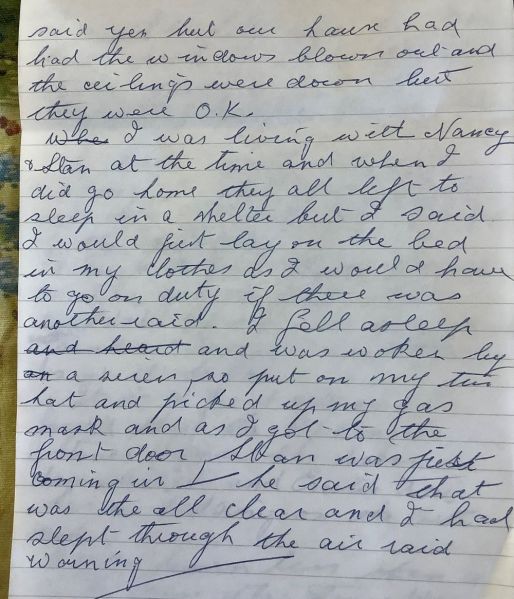 said yes but our house had
had the windows blown out and
the ceilings were down but
they were O.K.
Whe I was living with Nancy
& Stan at the time and when I
did go home they all left to
sleep in a shelter but I said
I would just lay on the bed
in my clothes as I would have
to go on duty if there was
another raid. I fell asleep
and heard and was woken by
an a siren, so put on my tin
hat and picked up my gas
mask and as I got to the
front door, Stan was just
coming in — he said that
was the all clear and I had
slept through the air raid
warning